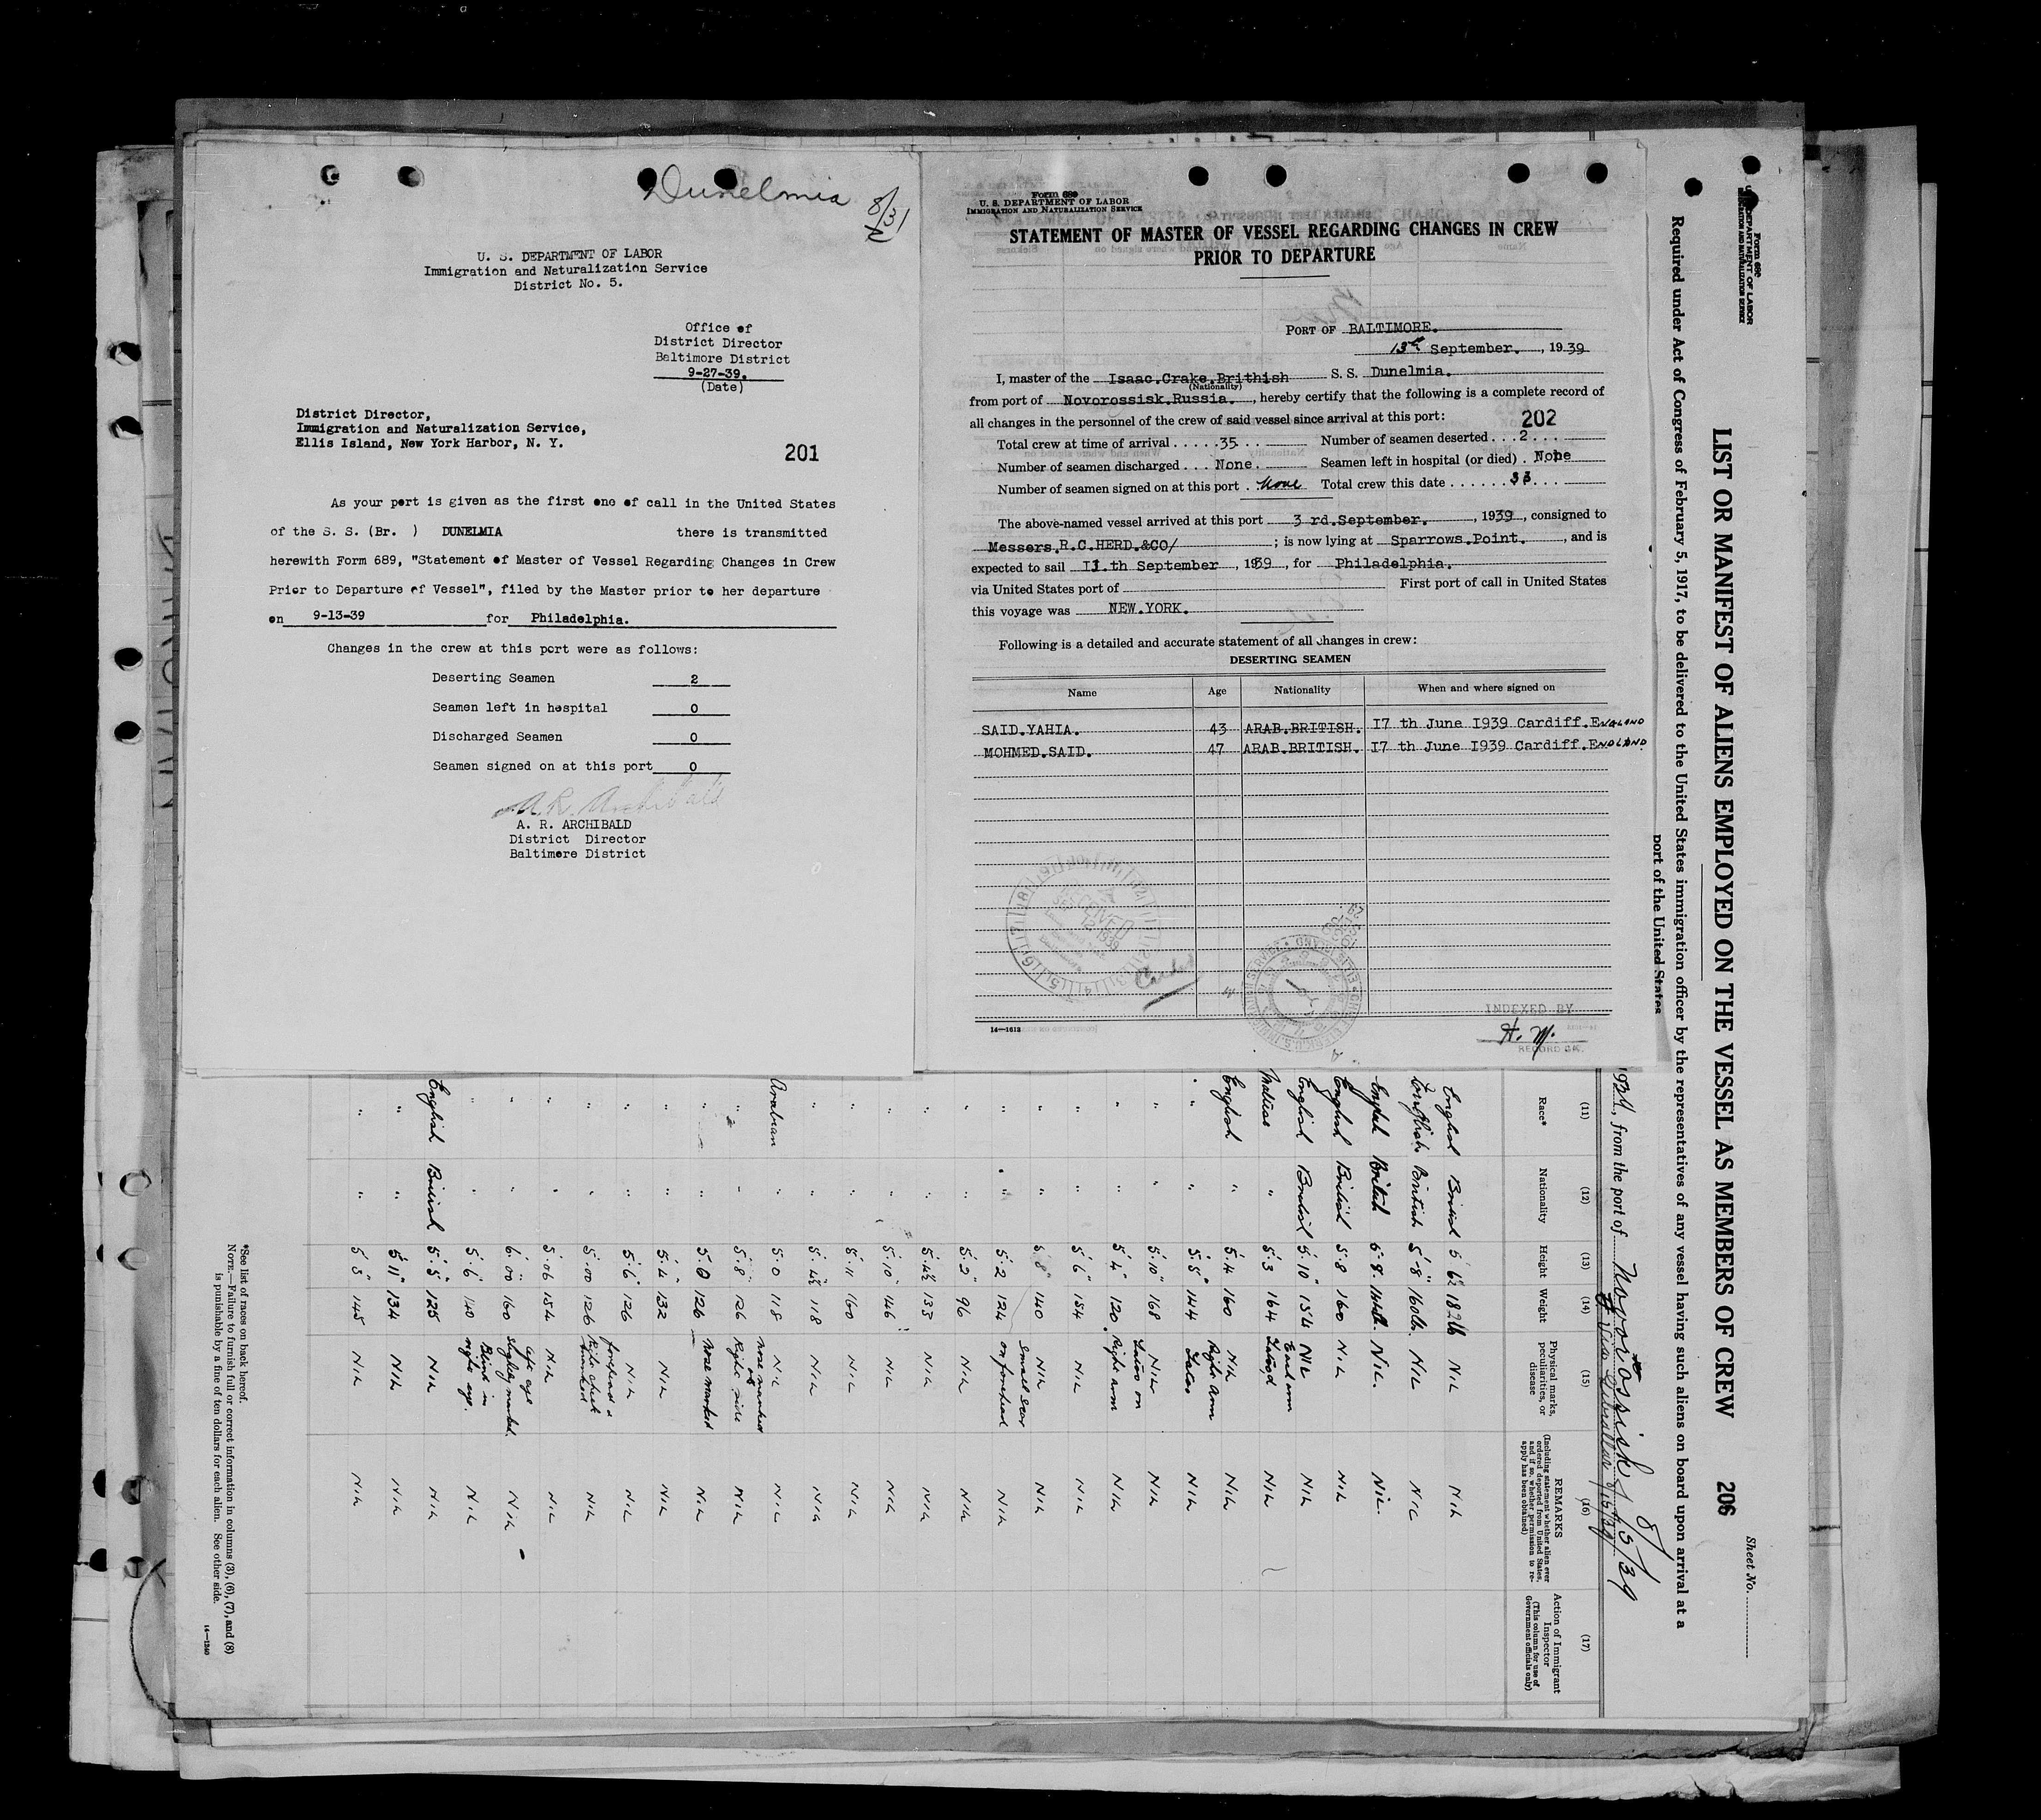 Dunelmia
8/31
U. S. DEPARTMENT OF LABOR
Immigration and Naturalization Service
District No. 5.
Office of
District Director
Baltimore District
9-27-39.
(Date)
District Director,
Immigration and Naturalization Service,
Ellis Island, New York Harbor, N. Y.
201
As your port is given as the first one of call in the United States
of the S. S. (Br. ) DUNELMIA there is transmitted
herewith Form 689, "Statement of Master of Vessel Regarding Changes in Crew
Prior to Departure of Vessel", filed by the Master prior to her departure
on 9-13-39 for Philadelphia.
Changes in the crew at this port were as follows:
Deserting Seamen 2
Seamen left in hospital 0
Discharged Seamen 0
Seamen signed on at this port 0
A. R. Archibald
A. R. ARCHIBALD
District Director
Baltimore District
Form 689
U. S. DEPARTMENT OF LABOR
IMMIGRATION AND NATURALIZATION SERVICE
STATEMENT OF MASTER OF VESSEL REGARDING CHANGES IN CREW
PRIOR TO DEPARTURE
PORT OF BALTIMORE.
13th September. , 1939
I, master of the Isaac.Crake.Brithish S. S. Dunelmia.
(Nationality)
from port of Novorossisk.Russia. , hereby certify that the following is a complete record of
all changes in the personnel of the crew of said vessel since arrival at this port:
202
Total crew at time of arrival . . . . . 35 . . . Number of seamen deserted . . . 2 . . .
Number of seamen discharged . . . None. Seamen left in hospital (or died) . None
Number of seamen signed on at this port . None Total crew this date . . . . . . 33 . . .
The above-named vessel arrived at this port 3 rd.September. , 1939 , consigned to
Messers.R.C.HERD.&CO/ ; is now lying at Sparrows.Point. , and is
expected to sail I3.th September , 1939 , for Philadelphia.
via United States port of First port of call in United States
this voyage was NEW.YORK.
Following is a detailed and accurate statement of all changes in crew:
DESERTING SEAMEN
Name Age Nationality When and where signed on
SAID.YAHIA. 43 ARAB.BRITISH. I7 th June I939 Cardiff.ENGLAND
MOHMED.SAID. 47 ARAB.BRITISH. I7 th June I939 Cardiff.ENGLAND
INDEXED BY
H. M.
RECORD CK.
14—1613
Form 689
U. S. DEPARTMENT OF LABOR
IMMIGRATION AND NATURALIZATION SERVICE
Sheet No.
LIST OR MANIFEST OF ALIENS EMPLOYED ON THE VESSEL AS MEMBERS OF CREW 206
Required under Act of Congress of February 5, 1917, to be delivered to the United States immigration officer by the representatives of any vessel having such aliens on board upon arrival at a
port of the United States
, from the port of Novorossisk 8/5/39
(11) (12) (13) (14) (15) (16) (17)
Race* Nationality Height Weight Physical marks, peculiarities, or disease REMARKS (Including statement whether alien ever ordered deported from United States, and if so, whether permission to re-apply has been obtained) Action of Immigrant Inspector (This column for use of Government officials only)
English British 5'6½ 182lb Nil Nil
English British 5'-8" 160lb. Nil Nil
English British 5-8. Nil. Nil.
English British 5-8 160 Nil Nil
English British 5'.10" 154 Nil Nil
" 5'.3 164 Nil
English " 5'.4 160 Nil Right Arm Nil
" " 5'.5" 144 Nil
" " 5'.10" 168 Nil Nil
" " 5'.4" 120 Right arm Nil
" " 5'.6" 154 Nil Nil
" " 5'.8" 140 Nil Nil
" " 5'.2 124 Small scar on forehead Nil
" " 5'.2" 96 Nil Nil
" " 5'.4½ 133 Nil Nil
" " 5'.10" 146 Nil Nil
" " 5'.11 160 Nil Nil
" " 5'.4½ 118 Nil Nil
Arabian " 5'.0 118 Nil Nil
" " 5'.8 126 nose marked on Right side Nil
" " 5'.0 126 nose marked Nil
" " 5'.4" 132 Nil Nil
" " 5'.6" 126 Nil Nil
" " 5'.00 126 forehead & Right cheek marked Nil
" " 5'.06 154 Nil Nil
" " 6'.00 160 Left eye slightly marked. Nil
" " 5'.6" 140 Blind in right eye. Nil
English British 5'.5" 125 Nil Nil
" " 5'.11" 134 Nil Nil
" " 5'.5" 145 Nil Nil
*See list of races on back hereof.
NOTE.—Failure to furnish full or correct information in columns (3), (6), (7), and (8)
is punishable by a fine of ten dollars for each alien. See other side.
14—1240